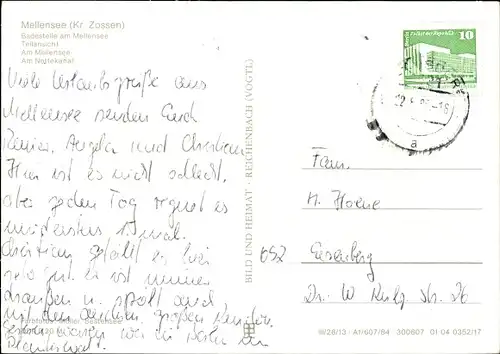 Mellensee (Kr. Zossen)
Badestelle am Mellensee
Teilansicht
Am Mellensee
Am Nottekanal
Viele Urlaubsgrüße aus
Mellensee senden Euch
Angela und Christian
Hier ist es nicht schlecht,
aber jeden Tag regnet es
mindestens 1 mal.
Christian gefällt es hier
sehr gut. Er ist immer
draußen u. spielt auch
mit den anderen großen Kindern.
Gestern waren wir in Berlin im
BILD UND HEIMAT · REICHENBACH (VOGTL)
10
a
Fam.
H. Horne
652 Eisenberg
Dr. W. Külz Str. 26
III/28/13 · A1/607/84 300607 01 04 0352/17